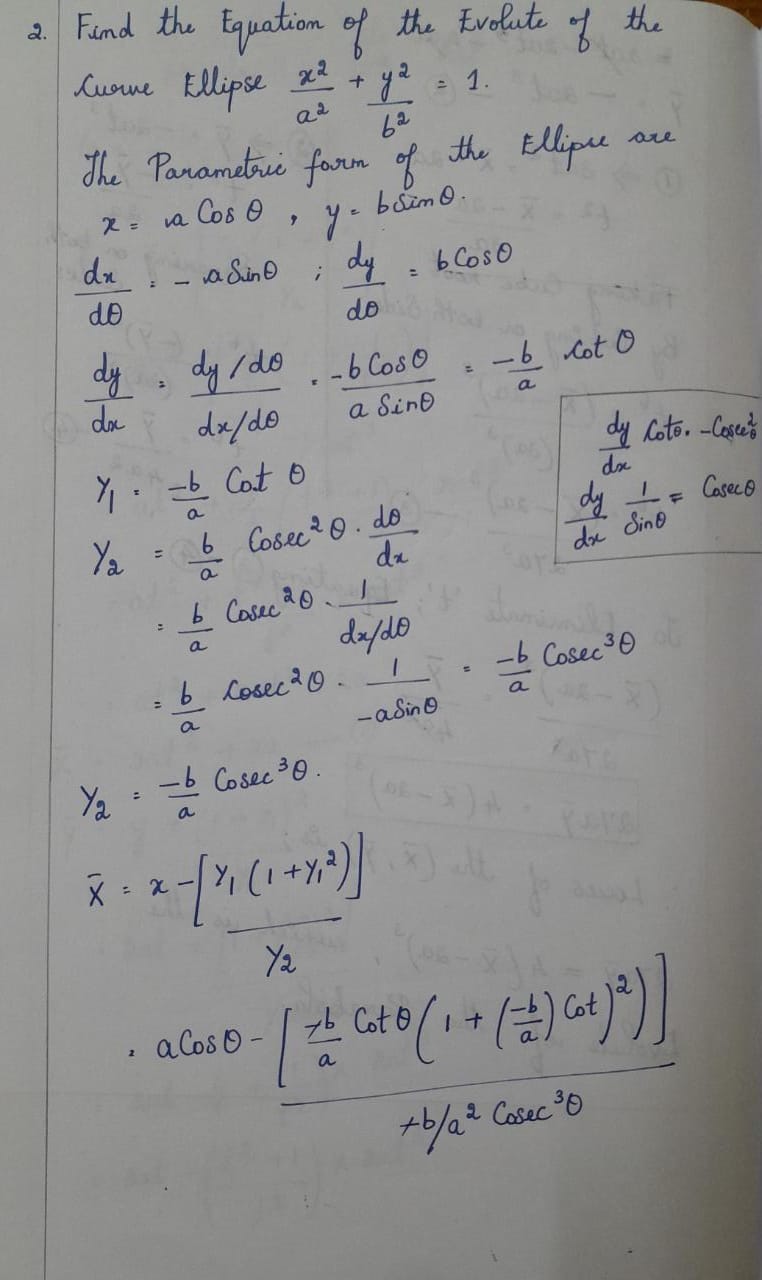 2. Find the Equation of the Evolute of the
Curve Ellipse x²/a² + y²/b² = 1.
The Parametric form of the Ellipse are
x = a Cos θ , y = b Sin θ.
dx/dθ = - a Sin θ ; dy/dθ = b Cos θ
dy/dx = dy/dθ / dx/dθ = -b Cos θ / a Sin θ = -b/a Cot θ
dy/dx Cot θ = -Cosec²θ
dy/dx 1/Sin θ = Cosec θ
Y₁ = -b/a Cot θ
Y₂ = b/a Cosec²θ . dθ/dx
= b/a Cosec²θ . 1/dx/dθ
= b/a Cosec²θ . 1/-a Sin θ = -b/a Cosec³θ
Y₂ = -b/a Cosec³θ.
X̄ = x - [Y₁ (1 + Y₁²)] / Y₂
= a Cos θ - [-b/a Cot θ (1 + (-b/a) Cot)²)] / +b/a² Cosec³θ